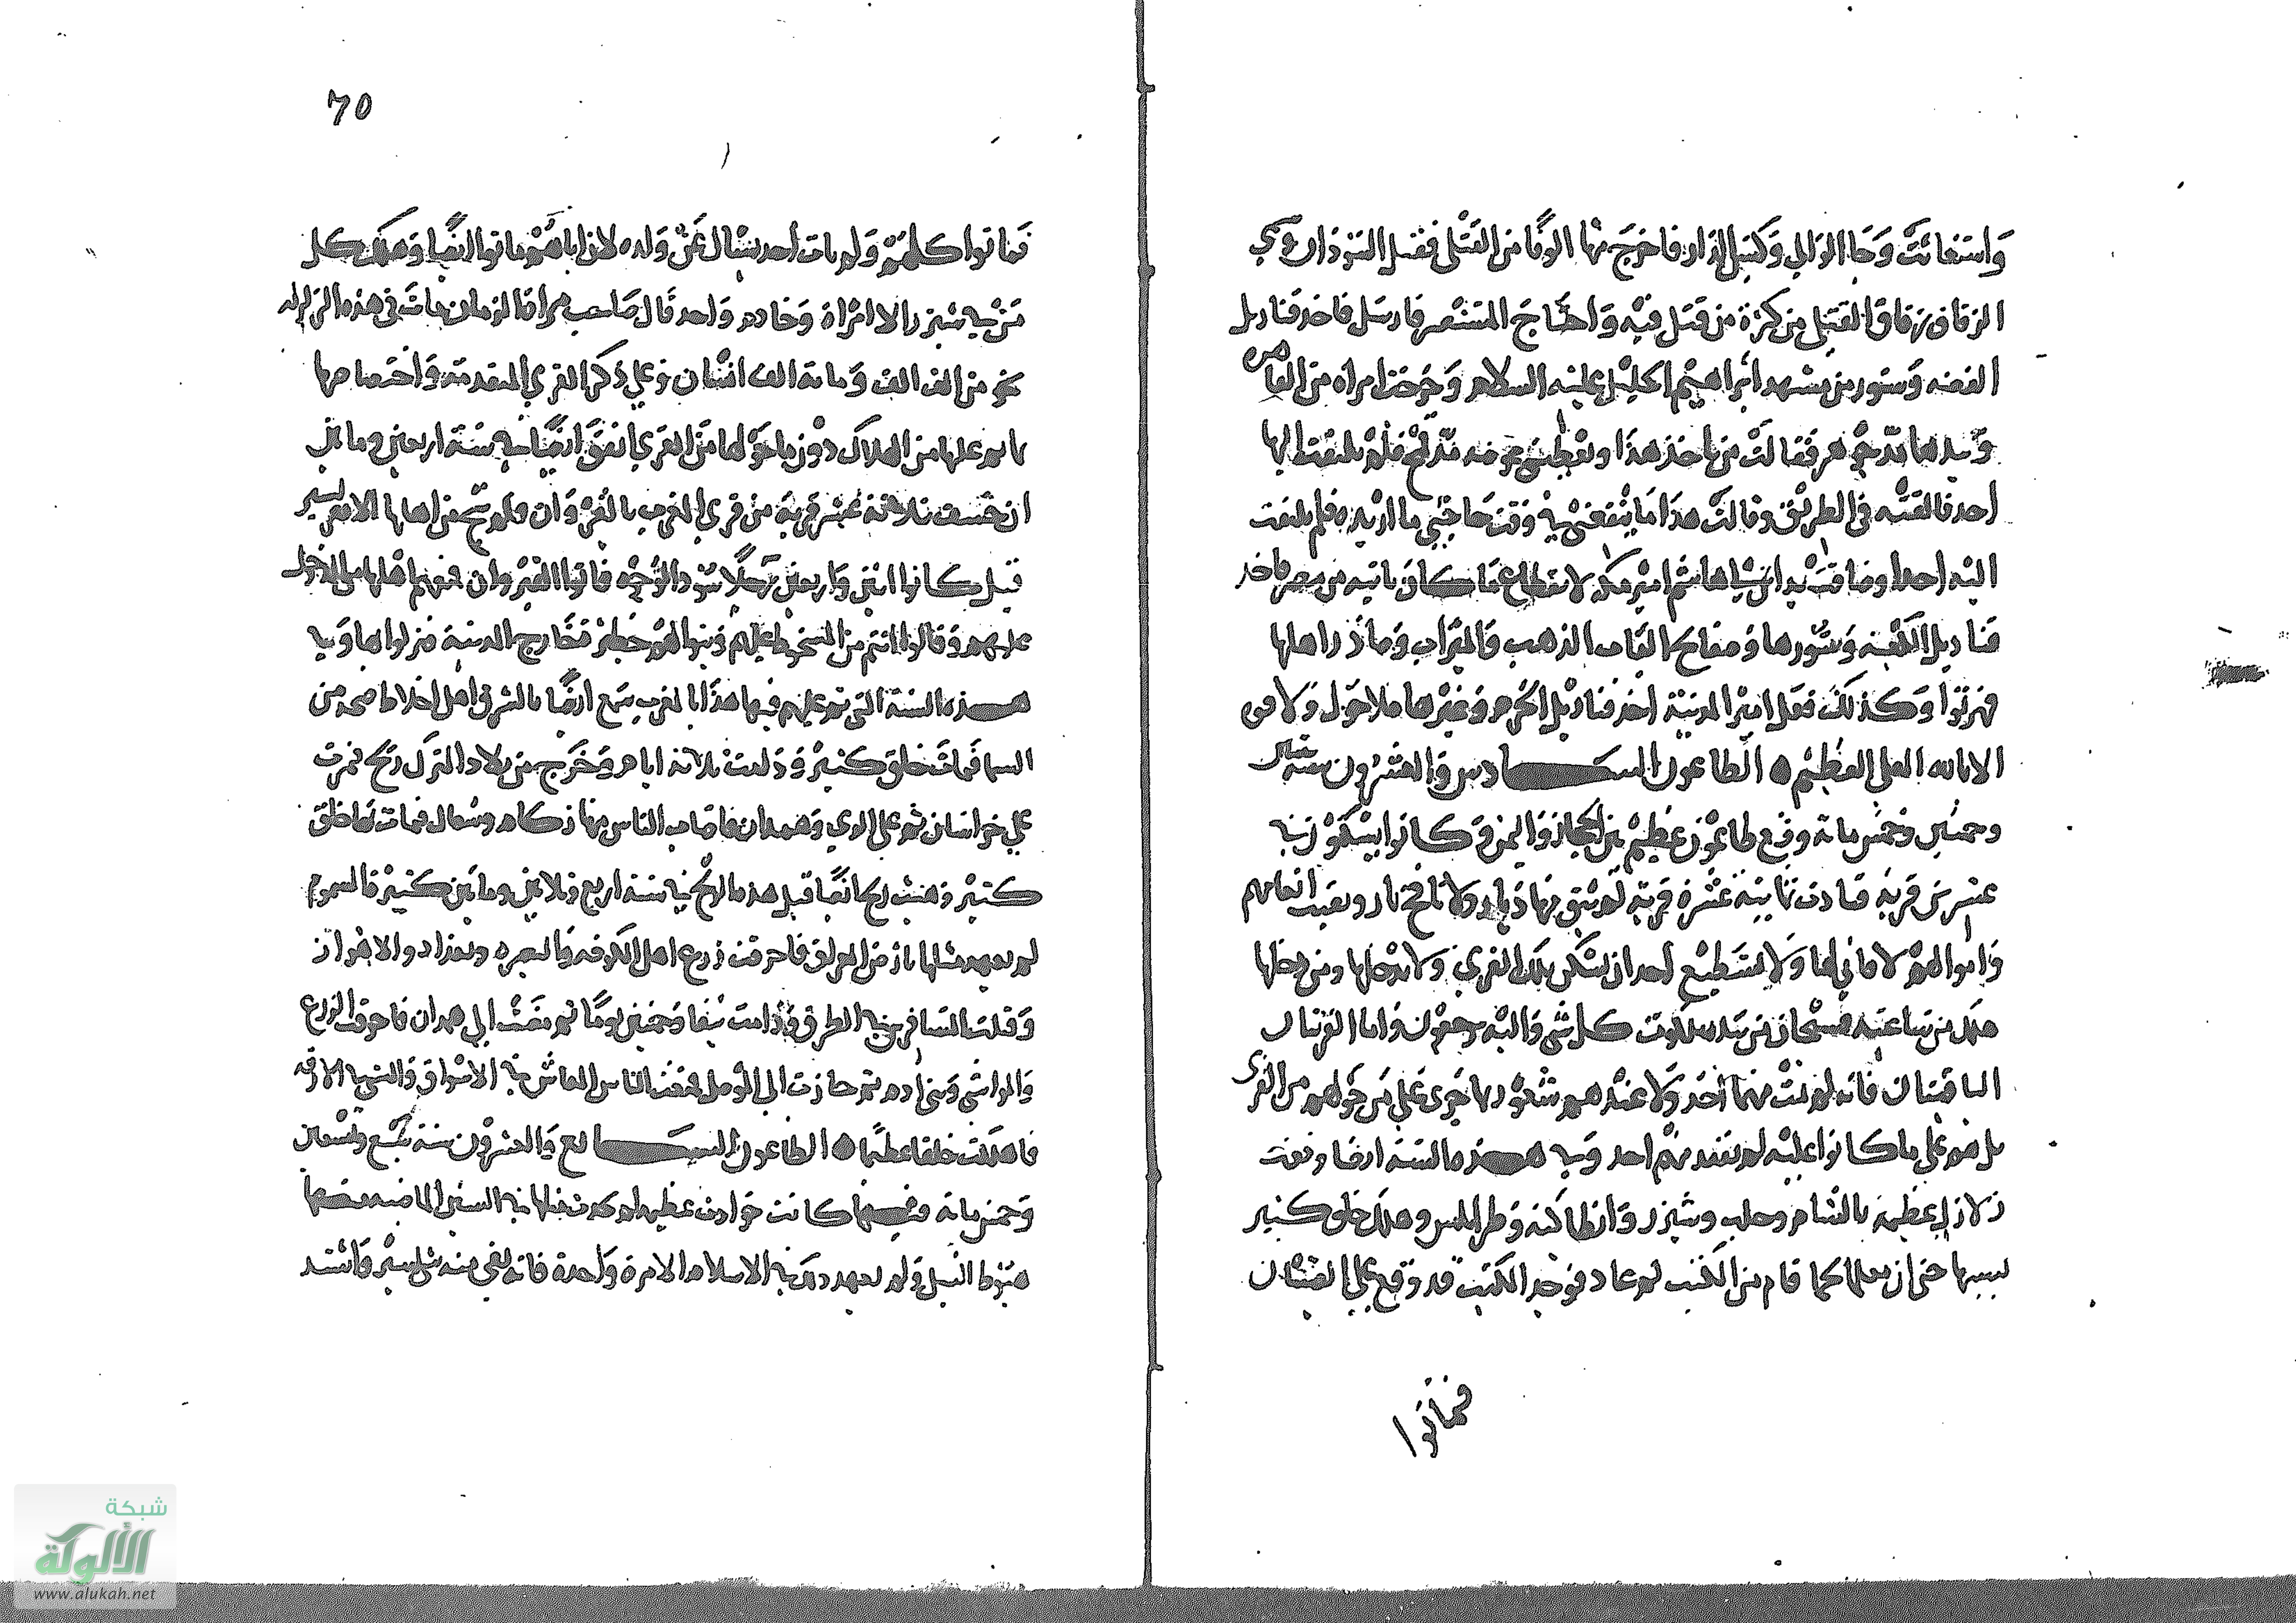 واستغاثت وجا الوالي وكبس الدار فاخرج منها الوفا من القتلى فقتل السودان وسمي
الزقاق زقاق القتلى من كثرة من قتل فيه واحتاج المستنصر فارسل فاخذ قناديل
الفضه وستور من مشهد ابراهيم الخليل عليه السلام وخرجت امراه من القاهره
وبيدها مد جوهر فقالت من ياخذ هذا ويعطيني عوضه مد قمح فلم يلتفت اليها
احد فالقته في الطريق وقالت هذا ما ينفعني وقت حاجتي ما اريده فلم يلتفت
اليه احد وضاقت يد ابن هاشم امير مكه لانقطاع ما كان ياتيه من مصر فاخذ
قناديل الكعبة وستورها وصفايح الباب الذهب والميزاب وصادر اهلها
فهربوا وكذلك فعل امير المدينة اخذ قناديل الحرم وغيرها فلا حول ولا قوه
الا بالله العلي العظيم الطاعون السادس والعشرون سنه ست
وخمسين وخمس مائة وقع طاعون عظيم بين الحجاز واليمن وكانوا يسكنون في
عشرين قرية فبادت ثمانية عشرة قرية لم يبق فيها ديار ولا نافخ نار وبقيت انعامهم
واموالهم لا قاني لها ولا يستطيع احد ان يسكن تلك القرى ولا يدخلها ومن دخلها
هلك من ساعته فسبحان من بيده ملكوت كل شي واليه ترجعون واما القريتان
الباقيتان فانه لم يمت منهما احد ولا عندهم شعور بما جرى على من حولهم من القرى
بل هم على ما كانوا عليه لم يفقد منهم احد وفي هذه السنة ايضا وقعت
زلازل عظيمة بالشام وحلب وشيزر وانطاكية وطرابلس وهلك خلق كثير
بسببها حتى ان معلما كما قام من المكتب ثم عاد فوجد المكتب قد وقع على الصبيان
فماتوا
٦٥
فماتوا كلهم ولم يات احد يسال عن ولده لان اباهم ماتوا ايضا وهلك كل
من في شيزر الا امراة وخادم واحد قال صاحب مراة الزمان مات في هذه الزلزله
نحو من الف الف ومائة الف انسان وعلى ذكر القرى المتقدمة واختصاصها
بما نزل عليها من الهلاك دون ما حولها من القرى اتفق ايضا في سنة اربعين ومايتين
ان خسفت ثلاثة عشر قرية من قرى المغرب بالقيروان ولم ينج من اهلها الا اليسير
قيل كانوا اثنين واربعين رجلا سود الوجوه فاتوا القيروان فمنعهم اهلها من الدخول
عليهم وقالوا انتم من المسخوط عليهم وبنوا لهم حظيرة خارج المدينة فنزلوها وفي
هذه السنة التي تم عليهم فيها هذا بالمغرب سمع ايضا بالشرق اهل اخلاط صيحة من
السما فمات خلق كثير وزلزلت ثلاثة ايام وخرج من بلاد الترك ريح فمرت
على خراسان ثم على الري وهمدان فاصاب الناس منها زكام وسعال فمات بها خلق
كثير وهبت ريح ايضا قبل هذه الريح في سنة اربع وثلاثين ومايتين كثيرة السموم
لم يعهد مثلها بارض العراق فاحرقت زرع اهل الكوفه والبصره وبغداد والاهواز
وقتلت المسافرين في الطرق ودامت نيفا وخمسين يوما ثم مضت الى همدان فاحرقت الزرع
والمواشي وبني ادم ثم جازت الى الموصل فمنعت الناس المعاش في الاسواق والمشي في الازقه
فاهلكت خلقا عظيما الطاعون السابع والعشرون سنة سبع وتسعين
وخمس مائة وفيها كانت حوادث عظيمه لم يحدث مثلها في السنين الماضيه بعضها
هبوط النيل ولم يعهد ذلك في الاسلام الا مرة واحدة فانه بقي منه شي يسير واشتد
شبكة
الألوكة
www.alukah.net